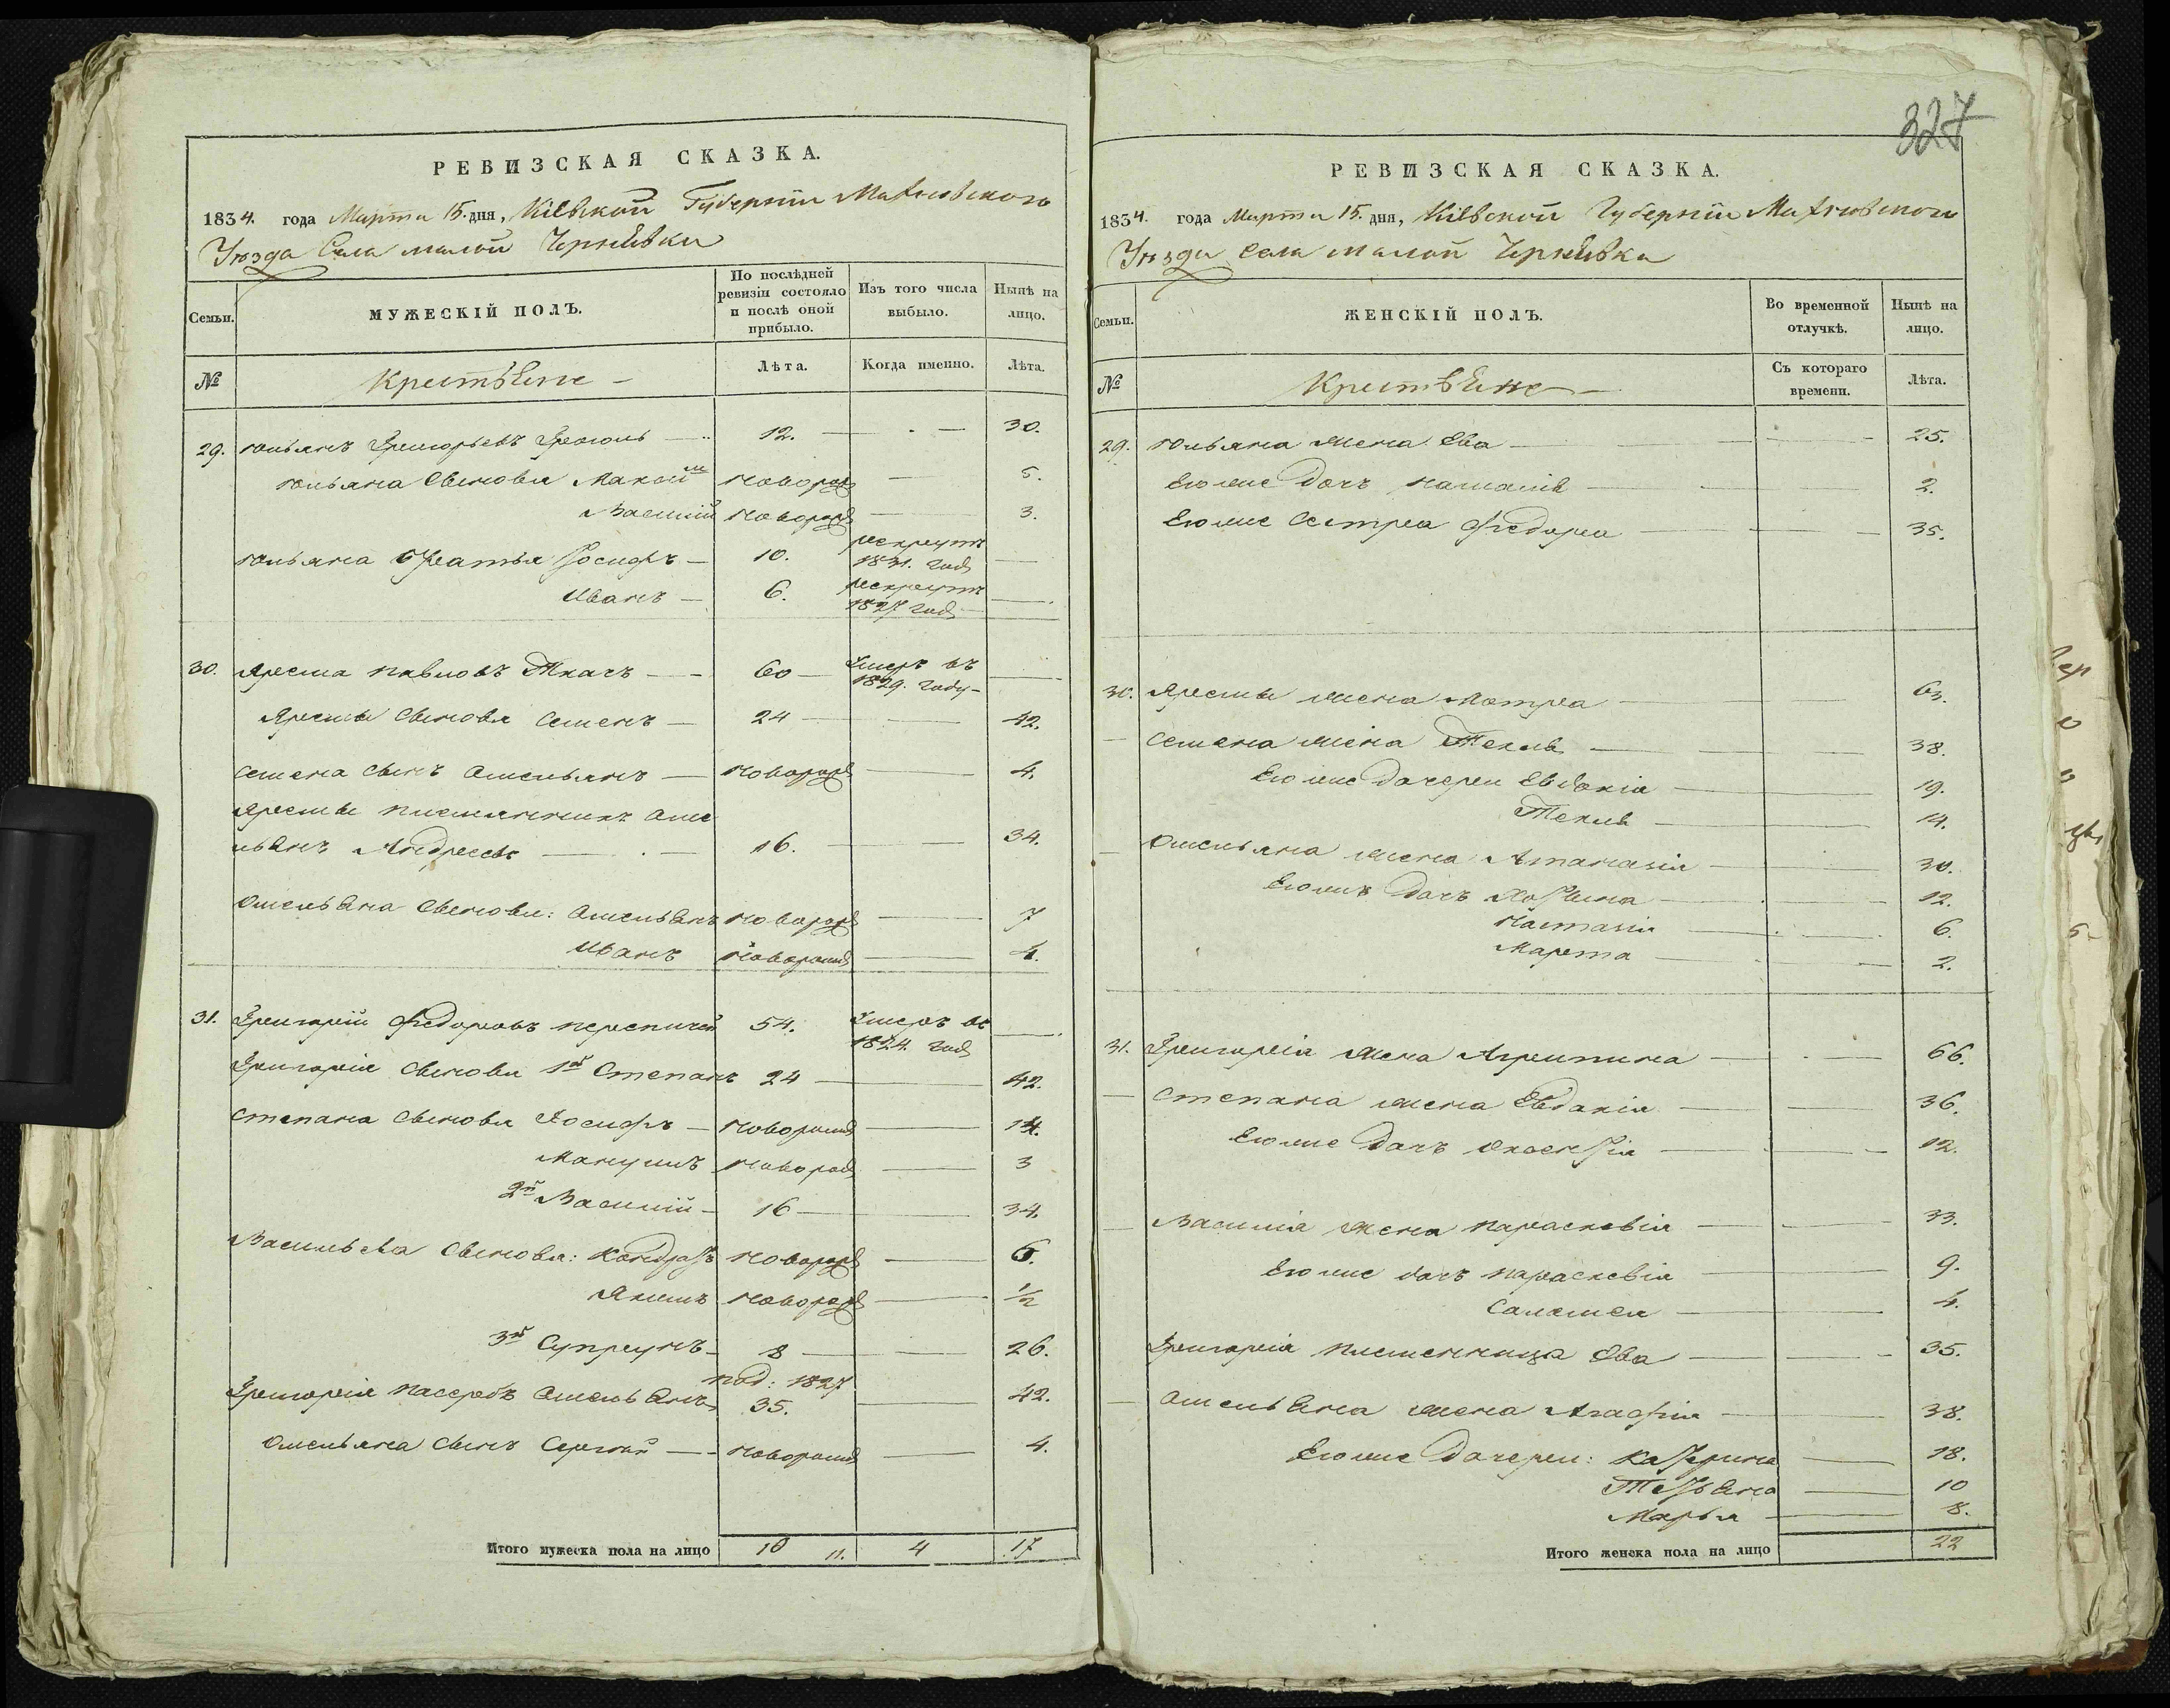 327
РЕВИЗСКАЯ СКАЗКА.
1834. года Марта 15. дня, Кіевской Губерніи Махновского
Уезда Села малой Чернявки
Семьи.
МУЖЕСКІЙ ПОЛЪ.
По послѣдней ревизіи состояло и послѣ оной прибыло.
Изъ того числа выбыло.
Нынѣ на лицо.
№
Крестьяне
Лѣта.
Когда именно.
Лѣта.
29. юльянъ Григорьевъ 12. 30.
юльяна сынови 5.
Василий новорож 3.
юльяна братья Иосифъ 10. рекрутъ 1831. год
Иванъ 6. рекрутъ 1827 год
30. Ярема павловъ Ткачъ 60 умеръ въ 1829. году
Яремы сынови Семенъ 24 42.
Семена сынъ Омельянъ новорож 4.
Яремы племянникъ Оме
льянъ Андреевъ 16. 34.
Омельяна сынови: Омельянъ новорож 7
Иванъ новорож 4.
31. Григорій Федоровъ 54. умеръ въ 1824. год
Григорія сынови 1й Степанъ 24 42.
Степана сынови Иосифъ новорож 14.
новорож 3
2й Василий 16 34.
Василья сынови: Кондратъ новорож 6.
Якимъ новорож 1/2
3й Супрунъ 8 26.
Григорія пасербъ Омельянъ под: 1827 35. 42.
Омельяна сынъ Сергий новорож 4.
Итого мужеска пола на лицо 10 11. 4 17
РЕВИЗСКАЯ СКАЗКА.
1834. года Марта 15. дня, Кіевской Губерніи Махновского
Уезда Села малой Чернявки
Семьи.
ЖЕНСКІЙ ПОЛЪ.
Во временной отлучкѣ.
Нынѣ на лицо.
№
Крестьяне
Съ котораго времени.
Лѣта.
29. юльяна жена Ева 25.
Его же дочъ 2.
Его же сестра Федора 35.
30. Яремы жена Мотра 63.
Семена жена Текля 38.
Его же дочери Евдокія 19.
Текля 14.
Омельяна жена Атаназія 30.
Его же дочъ 12.
Настазія 6.
Марта 2.
31. Григорія жена Агрипина 66.
Степана жена Евдокія 36.
Его же дочъ 12.
Василія жена Параскевія 33.
Его же дочъ Параскевія 9.
4.
Григорія племенница Ева 35.
Омельяна жена Агафія 38.
Его же дочери: Катрина 18.
Тетьяна 10
Марья 8.
Итого женска пола на лицо 22